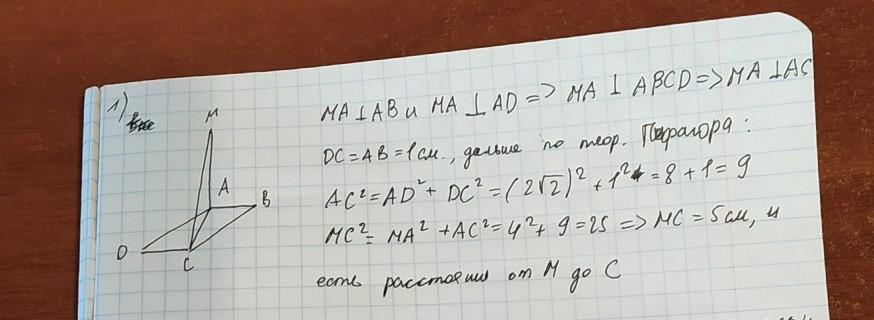 1)
M
A
B
D
C
MA⊥AB и MA⊥AD => MA ⊥ ABCD => MA⊥AC
DC=AB=1см., дальше по теор. Пифагора:
AC²=AD²+DC²=(2√2)²+1²=8+1=9
MC²=MA²+AC²=4²+9=25 => MC=5см, и
есть расстояние от M до C